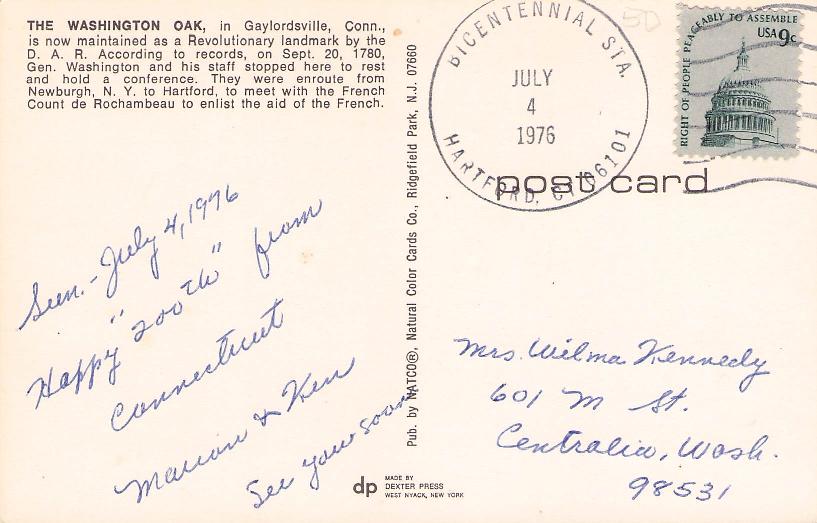 THE WASHINGTON OAK, in Gaylordsville, Conn.,
is now maintained as a Revolutionary landmark by the
D. A. R. According to records, on Sept. 20, 1780,
Gen. Washington and his staff stopped here to rest
and hold a conference. They were enroute from
Newburgh, N. Y. to Hartford, to meet with the French
Count de Rochambeau to enlist the aid of the French.
Sun.- July 4, 1976
Happy "200th" from
Connecticut
Marion & Ken
See you soon
Pub. by NATCO®, Natural Color Cards Co., Ridgefield Park, N.J. 07660
dp
MADE BY
DEXTER PRESS
WEST NYACK, NEW YORK
50
BICENTENNIAL STA.
JULY
4
1976
HARTFORD, CT 06101
RIGHT OF PEOPLE PEACEABLY TO ASSEMBLE
USA 9c
post card
Mrs. Wilma Kennedy
601 M St.
Centralia, Wash.
98531